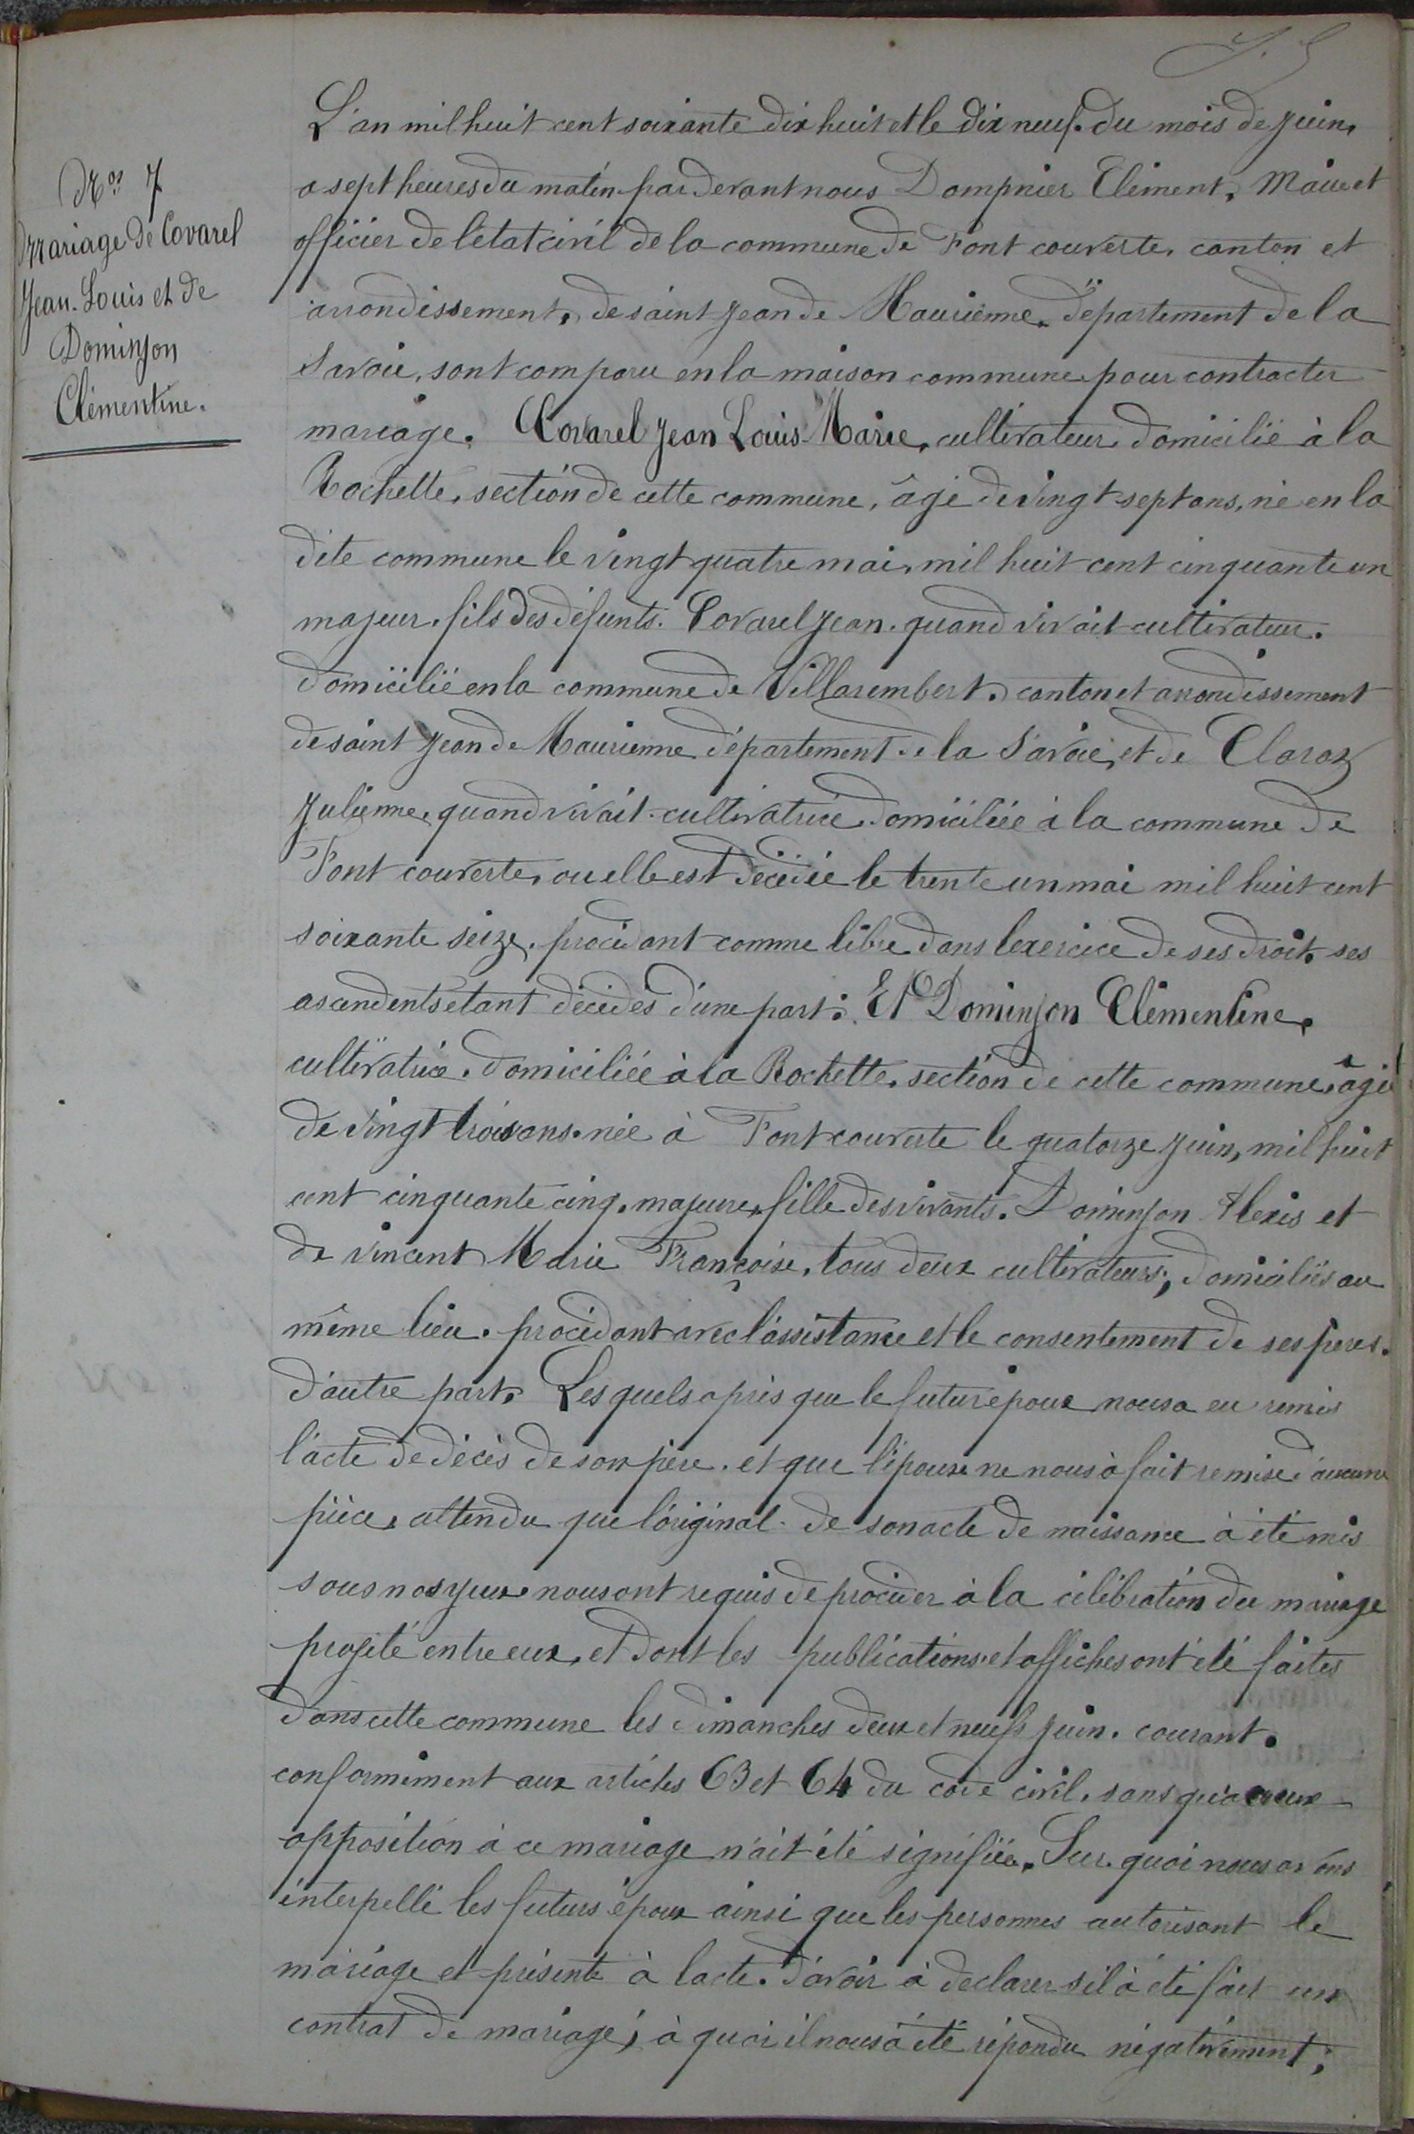 Nos 7
Mariage de Covarel
Jean-Louis et de
Dominjon
Clémentine.
L'an mil huit cent soixante dix huit et le dix neuf du mois de juin,
a sept heures du matin par devant nous Dompnier Clément, Maire et
officier de l'état civil de la commune de Font couverte, canton et
arrondissement, de saint jean de Maurienne, département de la
Savoie, sont comparu en la maison commune pour contracter
mariage. Covarel jean Louis-Marie, cultivateur domicilié à la
Rochette, section de cette commune, âgé de vingt sept ans, né en la
dite commune le vingt quatre mai, mil huit cent cinquante un
majeur. fils des défunts. Covarel jean. quand vivait cultivateur.
domicilié en la commune de Villarembert, canton et arrondissement
de saint jean de Maurienne département de la Savoie, et de Claraz
julienne, quand vivait cultivatrice domiciliée à la commune de
Font couverte, ou elle est décédée le trente un mai mil huit cent
soixante seize, procédant comme libre dans lexercice de ses droit, ses
ascendents étant décédés d'une part: Et Dominjon Clémentine,
cultivatrice, domiciliée à la Rochette, section de cette commune, âgée
de vingt trois ans. née à Font couverte le quatorze juin, mil huit
cent cinquante cinq, majeure, fille des vivants. Dominjon Alexis et
de vincent Marie Françoise, tous deux cultivateurs, domiciliés au
même lieu. procédant avec l'assistance et le consentement de ses peres.
d'autre part. Les quels après que le futur époux nous a eu remis
l'acte de décès de son père. et que l'épouse ne nous à fait remise d'aucune
pièce, attendu que l'original de son acte de naissance à été mis
sous nos yeux nous ont requis de procéder à la célébration du mariage
projeté entre eux, et dont les publications et affiches ont été faites
dans cette commune les dimanches deux et neuf juin. courant.
conformément aux articles 63 et 64 du code civil, sans qu'aucune
opposition à ce mariage n'ait été signifiée. Sur quoi nous avons
interpellé les futurs époux ainsi que les personnes autorisant le
mariage et présente à lacte. d'avoir à declarer s'il à été fait un
contrat de mariage; à quoi il nous à été répondu négativement;